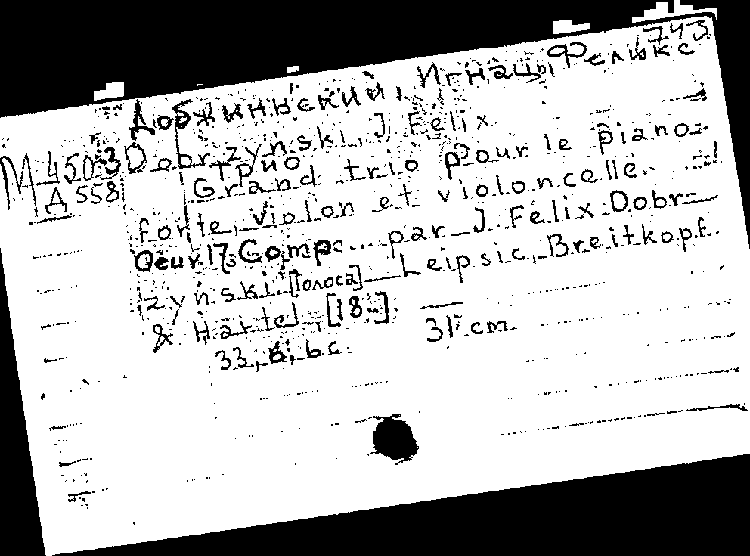 743
Добжиньский, Игнацы Феликс
М 450-3 Dobrzyński, J. Félix
Д 558 Трио
Grand trio pour le piano-
forte, violon et violoncelle.
Oeuv. 17. Comp... par J. Félix Dobr-
zyński. [Голоса] Leipsic, Breitkopf
& Härtel, [18-].
33, 6, 6 с. 31 cm.